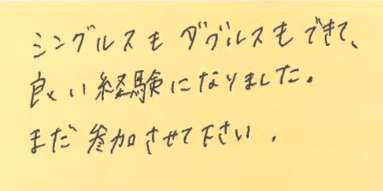 シングルスもダブルスもできて、
良い経験になりました。
まだ参加させて下さい.